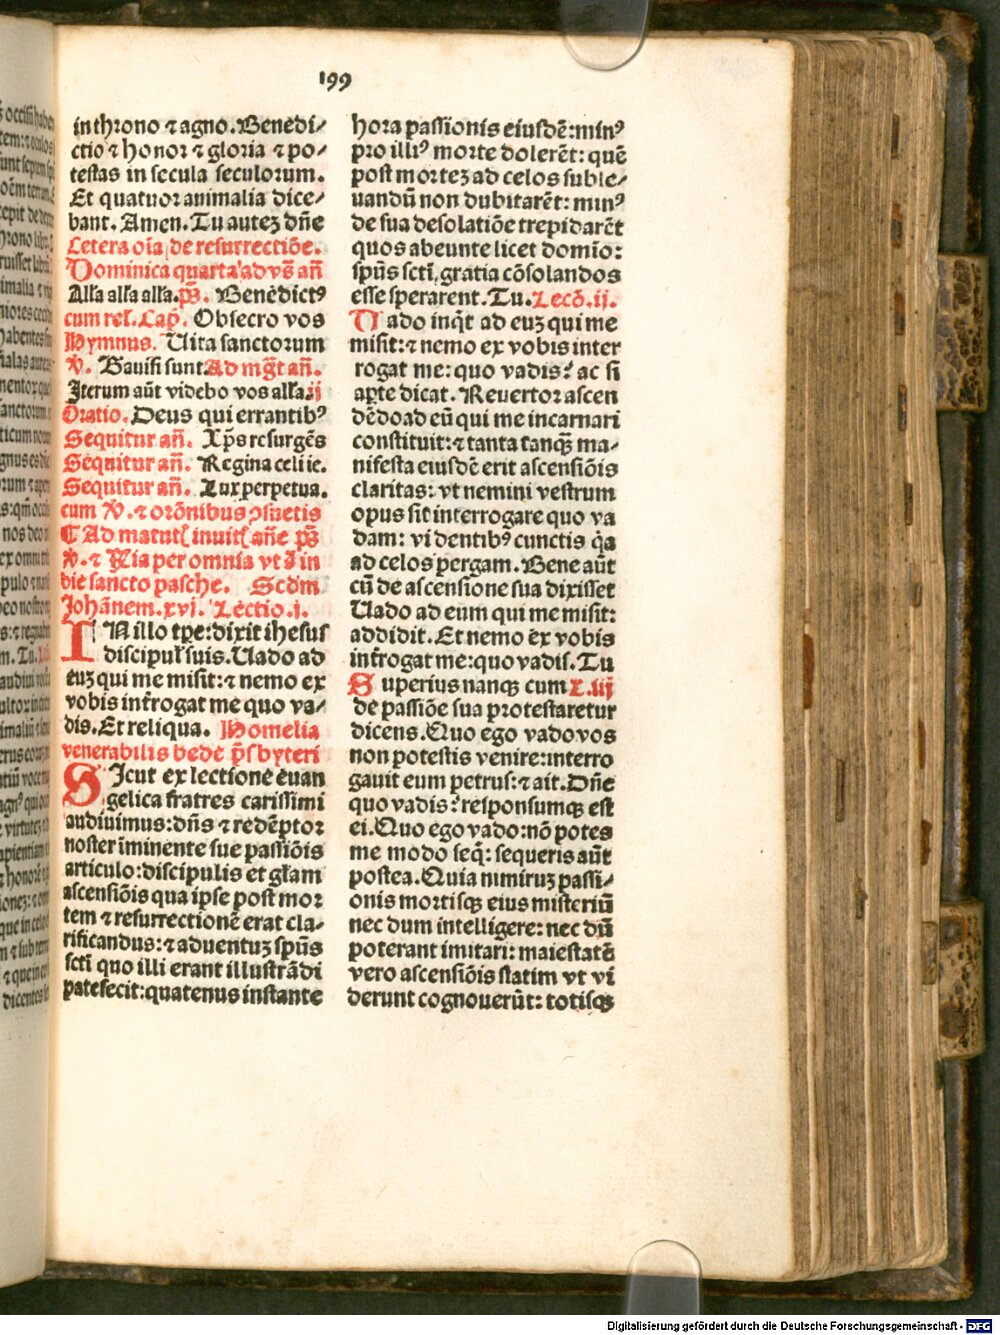 199
in throno ⁊ agno. Benedi/
ctio ⁊ honor ⁊ gloria ⁊ po/
testas in secula seculorum.
Et quatuor animalia dice/
bant. Amen. Tu autez dn̄e
Cetera oīa de resurrectiōe.
Dominica quarta ad vs̄ an̄
Alla alla alla. ps̄. Benedictꝰ
cum rel. Cap̄. Obsecro vos
Hymnus. Uita sanctorum
V̄. Gauisi sunt. Ad mgt̄ an̄.
Iterum aūt videbo vos alla. ij
Oratio. Deus qui errantibꝰ
Sequitur an̄. Xp̄s resurgēs
Sequitur an̄. Regina celi ie.
Sequitur an̄. Lux perpetua.
cum V̄. ⁊ orōnibus ꝯsuetis
¶ Ad matut̄ inuit̄ an̄e ps̄
V̄. ⁊ R̄ia per omnia vt s̄ in
die sancto pasche. Scdm
Johānem. xvj. Lectio. i.
IN illo tp̄e: dixit ihesus
discipul̄ suis. Uado ad
euz qui me misit: ⁊ nemo ex
vobis int̄rogat me quo va/
dis. Et reliqua. Homelia
venerabilis bede p̄sbyteri
SIcut ex lectione euan
gelica fratres carissimi
audiuimus: dn̄s ⁊ redēptor
noster īminente sue passiōis
articulo: discipulis et gl̄am
ascensiōis qua ipse post mor
tem ⁊ resurrectionē erat cla/
rificandus: ⁊ aduentuz sp̄us
sct̄i quo illi erant illustrādi
patefecit: quatenus instante
hora passionis eiusdē: minꝰ
pro illiꝰ morte dolerēt: quē
post mortez ad celos suble/
uandū non dubitarēt: minꝰ
de sua desolatiōe trepidarēt
quos abeunte licet domīo:
sp̄us sct̄i, gratia cōsolandos
esse sperarent. Tu. Lecō. ij.
Uado inq̄t ad euz qui me
misit: ⁊ nemo ex vobis inter
rogat me: quo vadis? ac si
ap̱te dicat. Reuertor ascen
dēdo ad eū qui me incarnari
constituit: ⁊ tanta tanqꝫ ma/
nifesta eiusdē erit ascensiōis
claritas: vt nemini vestrum
opus sit interrogare quo va
dam: vi dentibꝰ cunctis q̄a
ad celos pergam. Bene aūt
cū de ascensione sua dixisset
Uado ad eum qui me misit:
addidit. Et nemo ex vobis
int̄rogat me: quo vadis. Tu
Superius nanqꝫ cum L. iij
de passiōe sua protestaretur
dicens. Quo ego vado vos
non potestis venire: interro
gauit eum petrus: ⁊ ait. Dn̄e
quo vadis? responsumqꝫ est
ei. Quo ego vado: nō potes
me modo seq̄: sequeris aūt
postea. Quia nimiruz passi/
onis mortisqꝫ eius misteriū
nec dum intelligere: nec dū
poterant imitari: maiestatē
vero ascensiōis statim vt vi
derunt cognouerūt: totisqꝫ
Digitalisierung gefördert durch die Deutsche Forschungsgemeinschaft - DFG